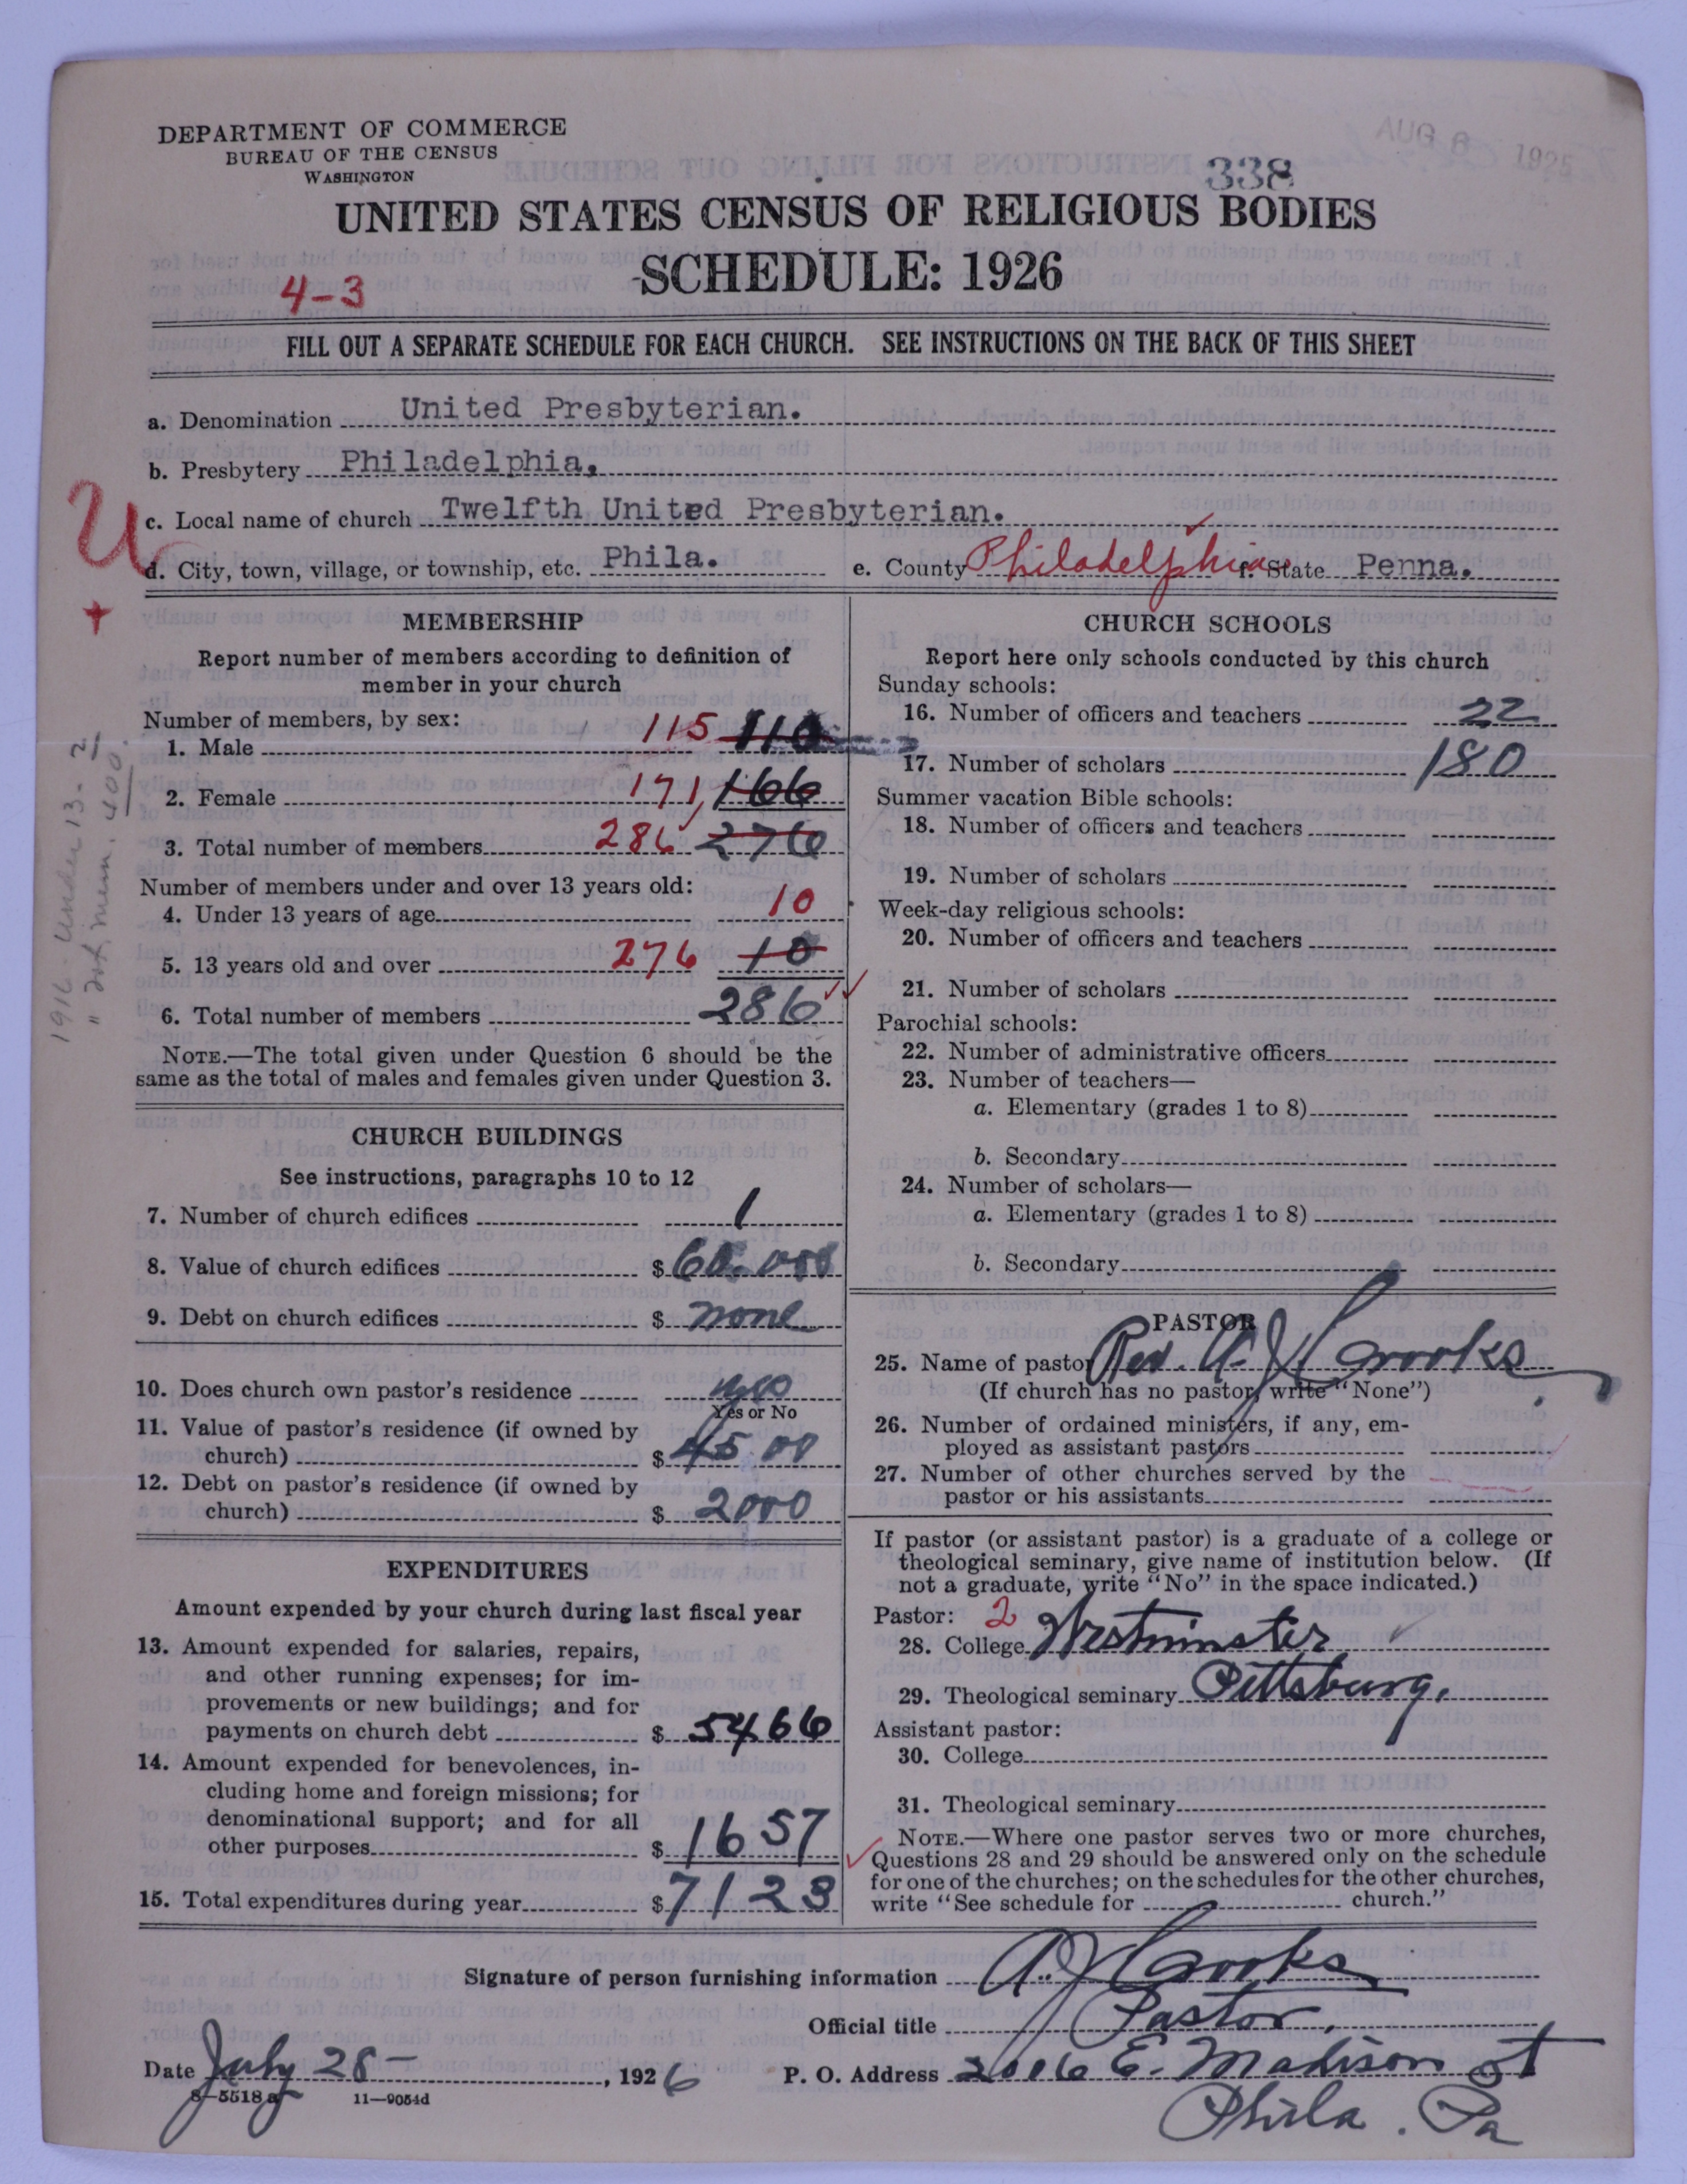 DEPARTMENT OF COMMERCE
BUREAU OF THE CENSUS
WASHINGTON
AUG 6 1926
338
UNITED STATES CENSUS OF RELIGIOUS BODIES
SCHEDULE: 1926
4-3
FILL OUT A SEPARATE SCHEDULE FOR EACH CHURCH. SEE INSTRUCTIONS ON THE BACK OF THIS SHEET
a. Denomination United Presbyterian.
b. Presbytery Philadelphia.
U
c. Local name of church Twelfth United Presbyterian.
d. City, town, village, or township, etc. Phila. e. County Philadelphia f. State Penna.
MEMBERSHIP
Report number of members according to definition of
member in your church
Number of members, by sex:
1. Male 115 110
2. Female 171 166
3. Total number of members 286 276
Number of members under and over 13 years old:
4. Under 13 years of age 10
5. 13 years old and over 276 10
6. Total number of members 286
NOTE.—The total given under Question 6 should be the
same as the total of males and females given under Question 3.
1916 - Under 13 - 2
" Tot mem. 400
CHURCH BUILDINGS
See instructions, paragraphs 10 to 12
7. Number of church edifices 1
8. Value of church edifices $ 60.000
9. Debt on church edifices $ none
10. Does church own pastor's residence yes
Yes or No
11. Value of pastor's residence (if owned by
church) $ 4500
12. Debt on pastor's residence (if owned by
church) $ 2000
EXPENDITURES
Amount expended by your church during last fiscal year
13. Amount expended for salaries, repairs,
and other running expenses; for im-
provements or new buildings; and for
payments on church debt $ 5466
14. Amount expended for benevolences, in-
cluding home and foreign missions; for
denominational support; and for all
other purposes $ 1657
15. Total expenditures during year $ 7123
CHURCH SCHOOLS
Report here only schools conducted by this church
Sunday schools:
16. Number of officers and teachers 22
17. Number of scholars 180
Summer vacation Bible schools:
18. Number of officers and teachers
19. Number of scholars
Week-day religious schools:
20. Number of officers and teachers
21. Number of scholars
Parochial schools:
22. Number of administrative officers
23. Number of teachers—
a. Elementary (grades 1 to 8)
b. Secondary
24. Number of scholars—
a. Elementary (grades 1 to 8)
b. Secondary
PASTOR
25. Name of pastor Rev. A. J. Crooks
(If church has no pastor, write "None")
26. Number of ordained ministers, if any, em-
ployed as assistant pastors
27. Number of other churches served by the
pastor or his assistants
If pastor (or assistant pastor) is a graduate of a college or
theological seminary, give name of institution below. (If
not a graduate, write "No" in the space indicated.)
Pastor: 2
28. College Westminster
29. Theological seminary Pittsburg.
Assistant pastor:
30. College
31. Theological seminary
NOTE.—Where one pastor serves two or more churches,
Questions 28 and 29 should be answered only on the schedule
for one of the churches; on the schedules for the other churches,
write "See schedule for church."
Signature of person furnishing information A. J. Crooks
Official title Pastor.
Date July 28 - , 1926 P. O. Address 2006 E. Madison St
8-5518a 11-9054d
Phila. Pa